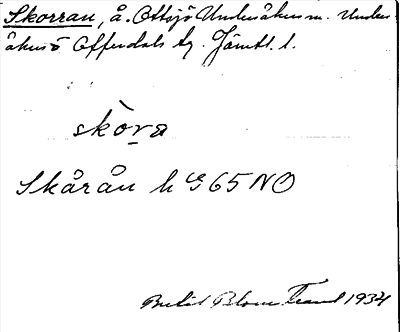 Skorran, å. Ottsjö Undersåkers m. Unders-
åkers o Offerdals tg. Jämtl. l.
skòra
Skårån h G 65 NO
Bertil Blome Transl 1934